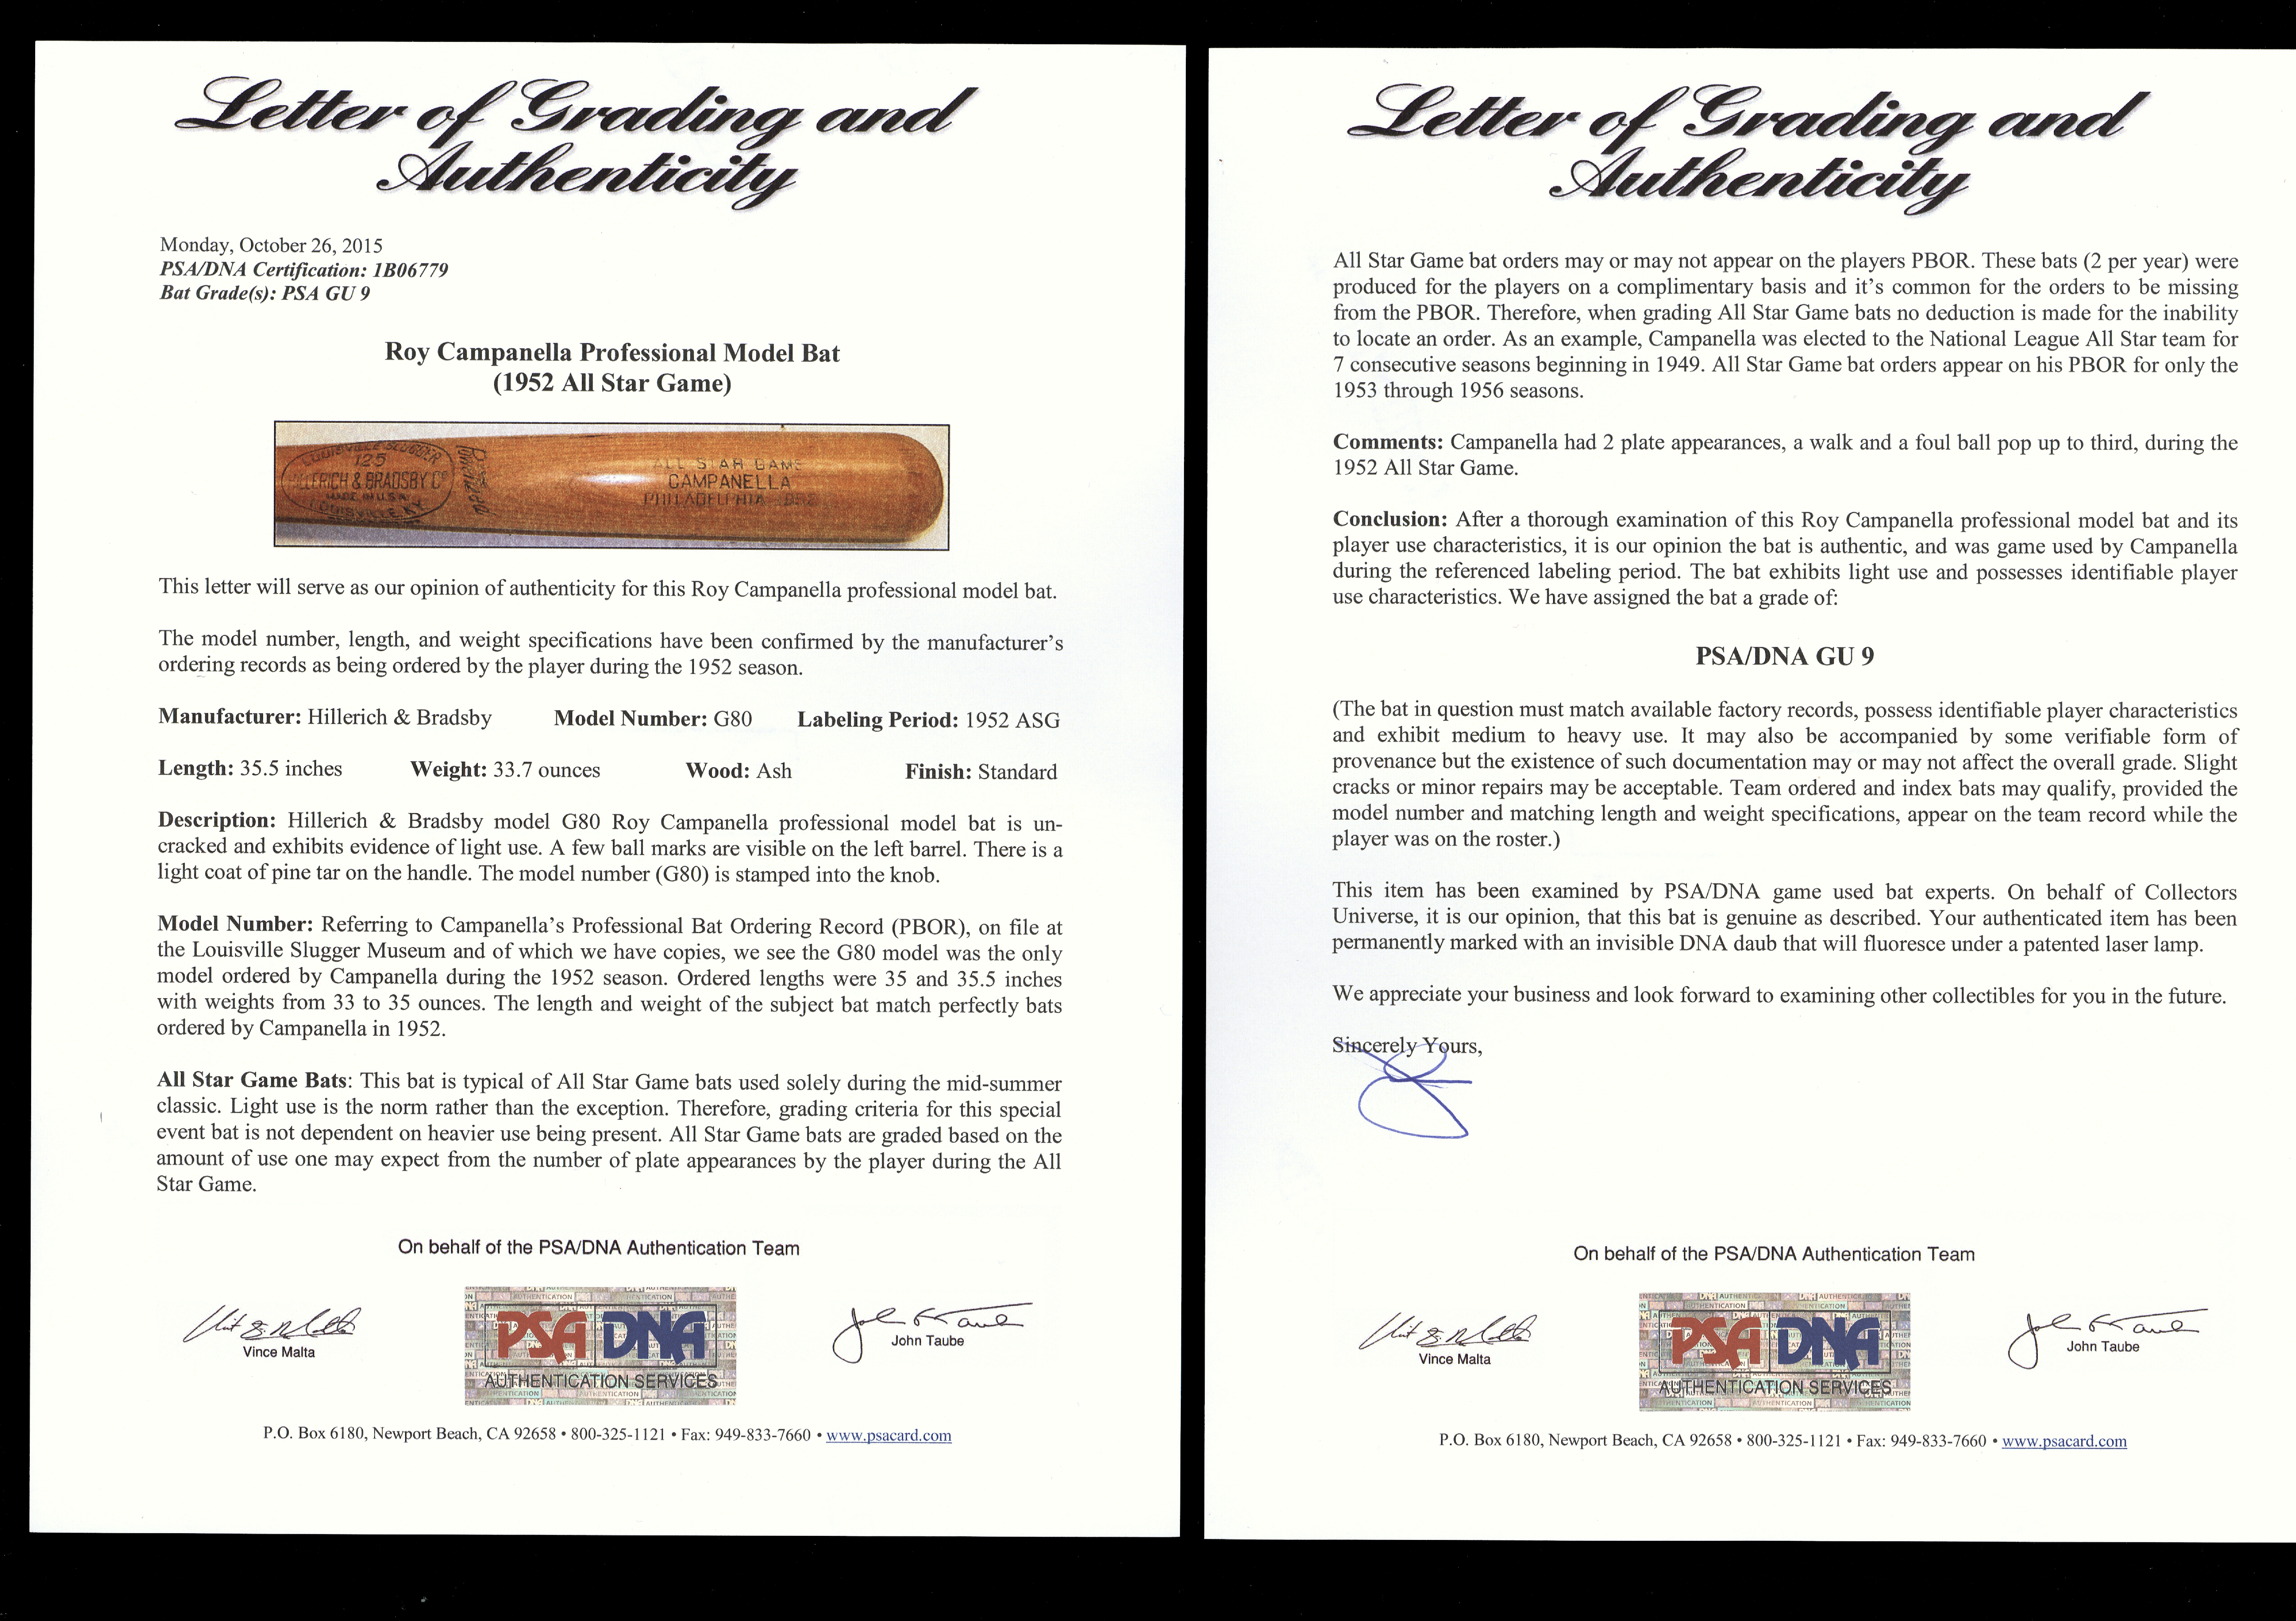 Letter of Grading and
Authenticity
Monday, October 26, 2015
PSA/DNA Certification: 1B06779
Bat Grade(s): PSA GU 9
Roy Campanella Professional Model Bat
(1952 All Star Game)
LOUISVILLE SLUGGER
125
HILLERICH & BRADSBY Co
MADE IN U.S.A.
LOUISVILLE, KY.
ALL STAR GAME
CAMPANELLA
PHILADELPHIA 1952
This letter will serve as our opinion of authenticity for this Roy Campanella professional model bat.
The model number, length, and weight specifications have been confirmed by the manufacturer’s
ordering records as being ordered by the player during the 1952 season.
Manufacturer: Hillerich & Bradsby Model Number: G80 Labeling Period: 1952 ASG
Length: 35.5 inches Weight: 33.7 ounces Wood: Ash Finish: Standard
Description: Hillerich & Bradsby model G80 Roy Campanella professional model bat is un-
cracked and exhibits evidence of light use. A few ball marks are visible on the left barrel. There is a
light coat of pine tar on the handle. The model number (G80) is stamped into the knob.
Model Number: Referring to Campanella’s Professional Bat Ordering Record (PBOR), on file at
the Louisville Slugger Museum and of which we have copies, we see the G80 model was the only
model ordered by Campanella during the 1952 season. Ordered lengths were 35 and 35.5 inches
with weights from 33 to 35 ounces. The length and weight of the subject bat match perfectly bats
ordered by Campanella in 1952.
All Star Game Bats: This bat is typical of All Star Game bats used solely during the mid-summer
classic. Light use is the norm rather than the exception. Therefore, grading criteria for this special
event bat is not dependent on heavier use being present. All Star Game bats are graded based on the
amount of use one may expect from the number of plate appearances by the player during the All
Star Game.
On behalf of the PSA/DNA Authentication Team
Vince Malta
PSA DNA
AUTHENTICATION SERVICES
John Taube
P.O. Box 6180, Newport Beach, CA 92658 • 800-325-1121 • Fax: 949-833-7660 • www.psacard.com
Letter of Grading and
Authenticity
All Star Game bat orders may or may not appear on the players PBOR. These bats (2 per year) were
produced for the players on a complimentary basis and it’s common for the orders to be missing
from the PBOR. Therefore, when grading All Star Game bats no deduction is made for the inability
to locate an order. As an example, Campanella was elected to the National League All Star team for
7 consecutive seasons beginning in 1949. All Star Game bat orders appear on his PBOR for only the
1953 through 1956 seasons.
Comments: Campanella had 2 plate appearances, a walk and a foul ball pop up to third, during the
1952 All Star Game.
Conclusion: After a thorough examination of this Roy Campanella professional model bat and its
player use characteristics, it is our opinion the bat is authentic, and was game used by Campanella
during the referenced labeling period. The bat exhibits light use and possesses identifiable player
use characteristics. We have assigned the bat a grade of:
PSA/DNA GU 9
(The bat in question must match available factory records, possess identifiable player characteristics
and exhibit medium to heavy use. It may also be accompanied by some verifiable form of
provenance but the existence of such documentation may or may not affect the overall grade. Slight
cracks or minor repairs may be acceptable. Team ordered and index bats may qualify, provided the
model number and matching length and weight specifications, appear on the team record while the
player was on the roster.)
This item has been examined by PSA/DNA game used bat experts. On behalf of Collectors
Universe, it is our opinion, that this bat is genuine as described. Your authenticated item has been
permanently marked with an invisible DNA daub that will fluoresce under a patented laser lamp.
We appreciate your business and look forward to examining other collectibles for you in the future.
Sincerely Yours,
On behalf of the PSA/DNA Authentication Team
Vince Malta
PSA DNA
AUTHENTICATION SERVICES
John Taube
P.O. Box 6180, Newport Beach, CA 92658 • 800-325-1121 • Fax: 949-833-7660 • www.psacard.com